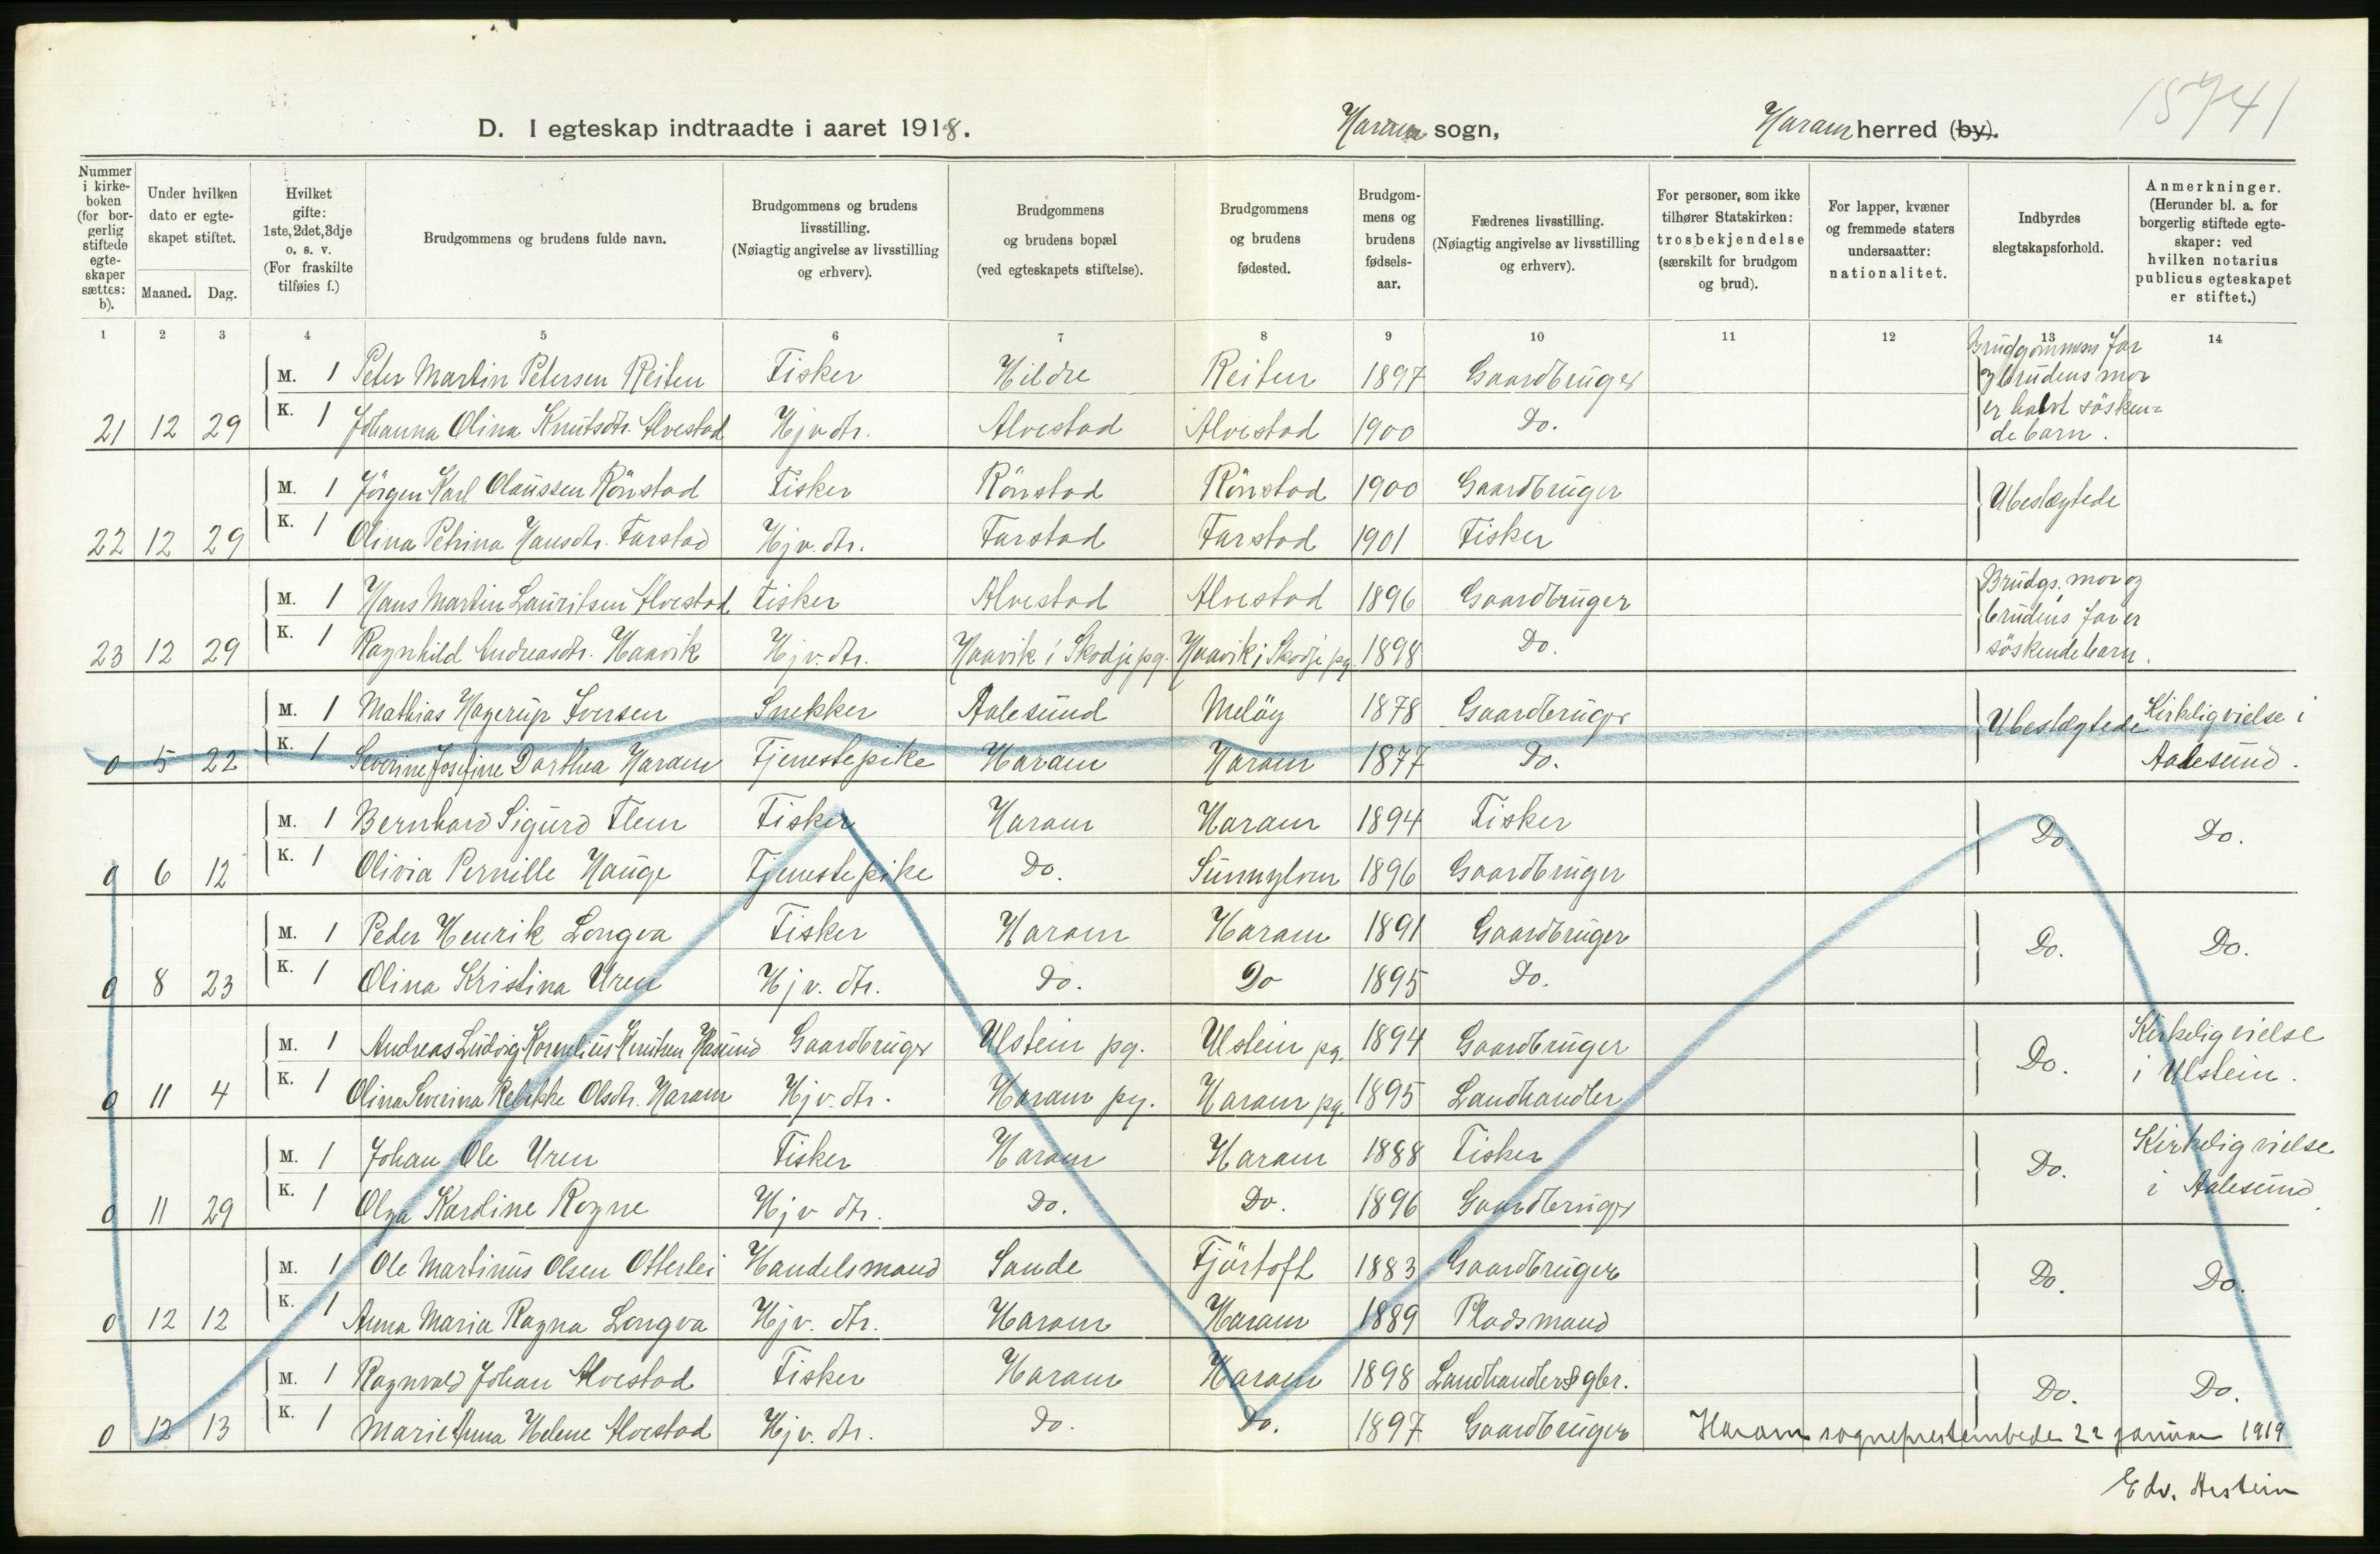 15741
D. I egteskap indtraadte i aaret 1918. Haram sogn, Haram herred (by).
Nummer i kirkeboken (for borgerlig stiftede egteskaper sættes: b). Under hvilken dato er egteskapet stiftet. Maaned. Dag. Hvilket gifte: 1ste, 2det, 3dje o. s. v. (For fraskilte tilføies f.) Brudgommens og brudens fulde navn. Brudgommens og brudens livsstilling. (Nøiagtig angivelse av livsstilling og erhverv). Brudgommens og brudens bopæl (ved egteskapets stiftelse). Brudgommens og brudens fødested. Brudgommens og brudens fødselsaar. Fædrenes livsstilling. (Nøiagtig angivelse av livsstilling og erhverv). For personer, som ikke tilhører Statskirken: trosbekjendelse (særskilt for brudgom og brud). For lapper, kvæner og fremmede staters undersaatter: nationalitet. Indbyrdes slegtskapsforhold. Anmerkninger. (Herunder bl. a. for borgerlig stiftede egteskaper: ved hvilken notarius publicus egteskapet er stiftet.)
1 2 3 4 5 6 7 8 9 10 11 12 13 14
M. 1 Peter Martin Petersen Reiten Fisker Hildre Reiten 1897 Gaardbruger Brudgommens far og brudens mor er halvt söskendebarn.
21 12 29 K. 1 Johanna Olina Knutsdtr. Alvestad Hjv. dtr. Alvestad Alvestad 1900 Do.
M. 1 Jörgen Karl Olaussen Rönstad Fisker Rönstad Rönstad 1900 Gaardbruger Ubeslegtede
22 12 29 K. 1 Olina Petrina Hansdtr. Farstad Hjv. dtr. Farstad Farstad 1901 Fisker
M. 1 Hans Martin Lauritsen Alvestad Fisker Alvestad Alvestad 1896 Gaardbruger Brudgs. mor og brudens far er söskendebarn.
23 12 29 K. 1 Ragnhild Andreasdtr. Haavik Hjv. dtr. Haavik i Skodje pg. Haavik i Skodje pg. 1898 Do.
M. 1 Mathias Hagerup Iversen Snekker Aalesund Melöy 1878 Gaardbruger Ubeslegtede Kirkelig vielse i Aalesund.
0 5 22 K. 1 Severine Josefine Dorthea Haram Tjenestepike Haram Haram 1877 Do.
M. 1 Bernhard Sigurd Flem Fisker Haram Haram 1894 Fisker Do. Do.
0 6 12 K. 1 Olivia Pernille Hauge Tjenestepike Do. Sunnylven 1896 Gaardbruger
M. 1 Peder Henrik Longva Fisker Haram Haram 1891 Gaardbruger Do. Do.
0 8 23 K. 1 Olina Kristina Uren Hjv. dtr. Do. Do 1895 Do.
M. 1 Andreas Ludvig Kornelius Knutsen Hasund Gaardbruger Ulstein pg. Ulstein pg. 1894 Gaardbruger Do. Kirkelig vielse i Ulstein.
0 11 4 K. 1 Olina Severina Rebekke Olsdtr. Haram Hjv. dtr. Haram pg. Haram pg. 1895 Landhandler
M. 1 Johan Ole Uren Fisker Haram Haram 1888 Fisker Do. Kirkelig vielse i Aalesund.
0 11 29 K. 1 Olga Karoline Rogne Hjv dtr. Do. Do. 1896 Gaardbruger
M. 1 Ole Martinus Olsen Otterlei Handelsmand Sande Fjörtoft 1883 Gaardbruger Do. Do.
0 12 12 K. 1 Anna Maria Ragna Longva Hjv. dtr. Haram Haram 1889 Pladsmand
M. 1 Ragnvald Johan Alvestad Fisker Haram Haram 1898 Landhandler & gbr. Do. Do.
0 12 13 K. 1 Marie Anna Helene Alvestad Hjv. dtr. Do. Do. 1897 Gaardbruger
Haram sogneprestembede 22 januar 1919
Edv.